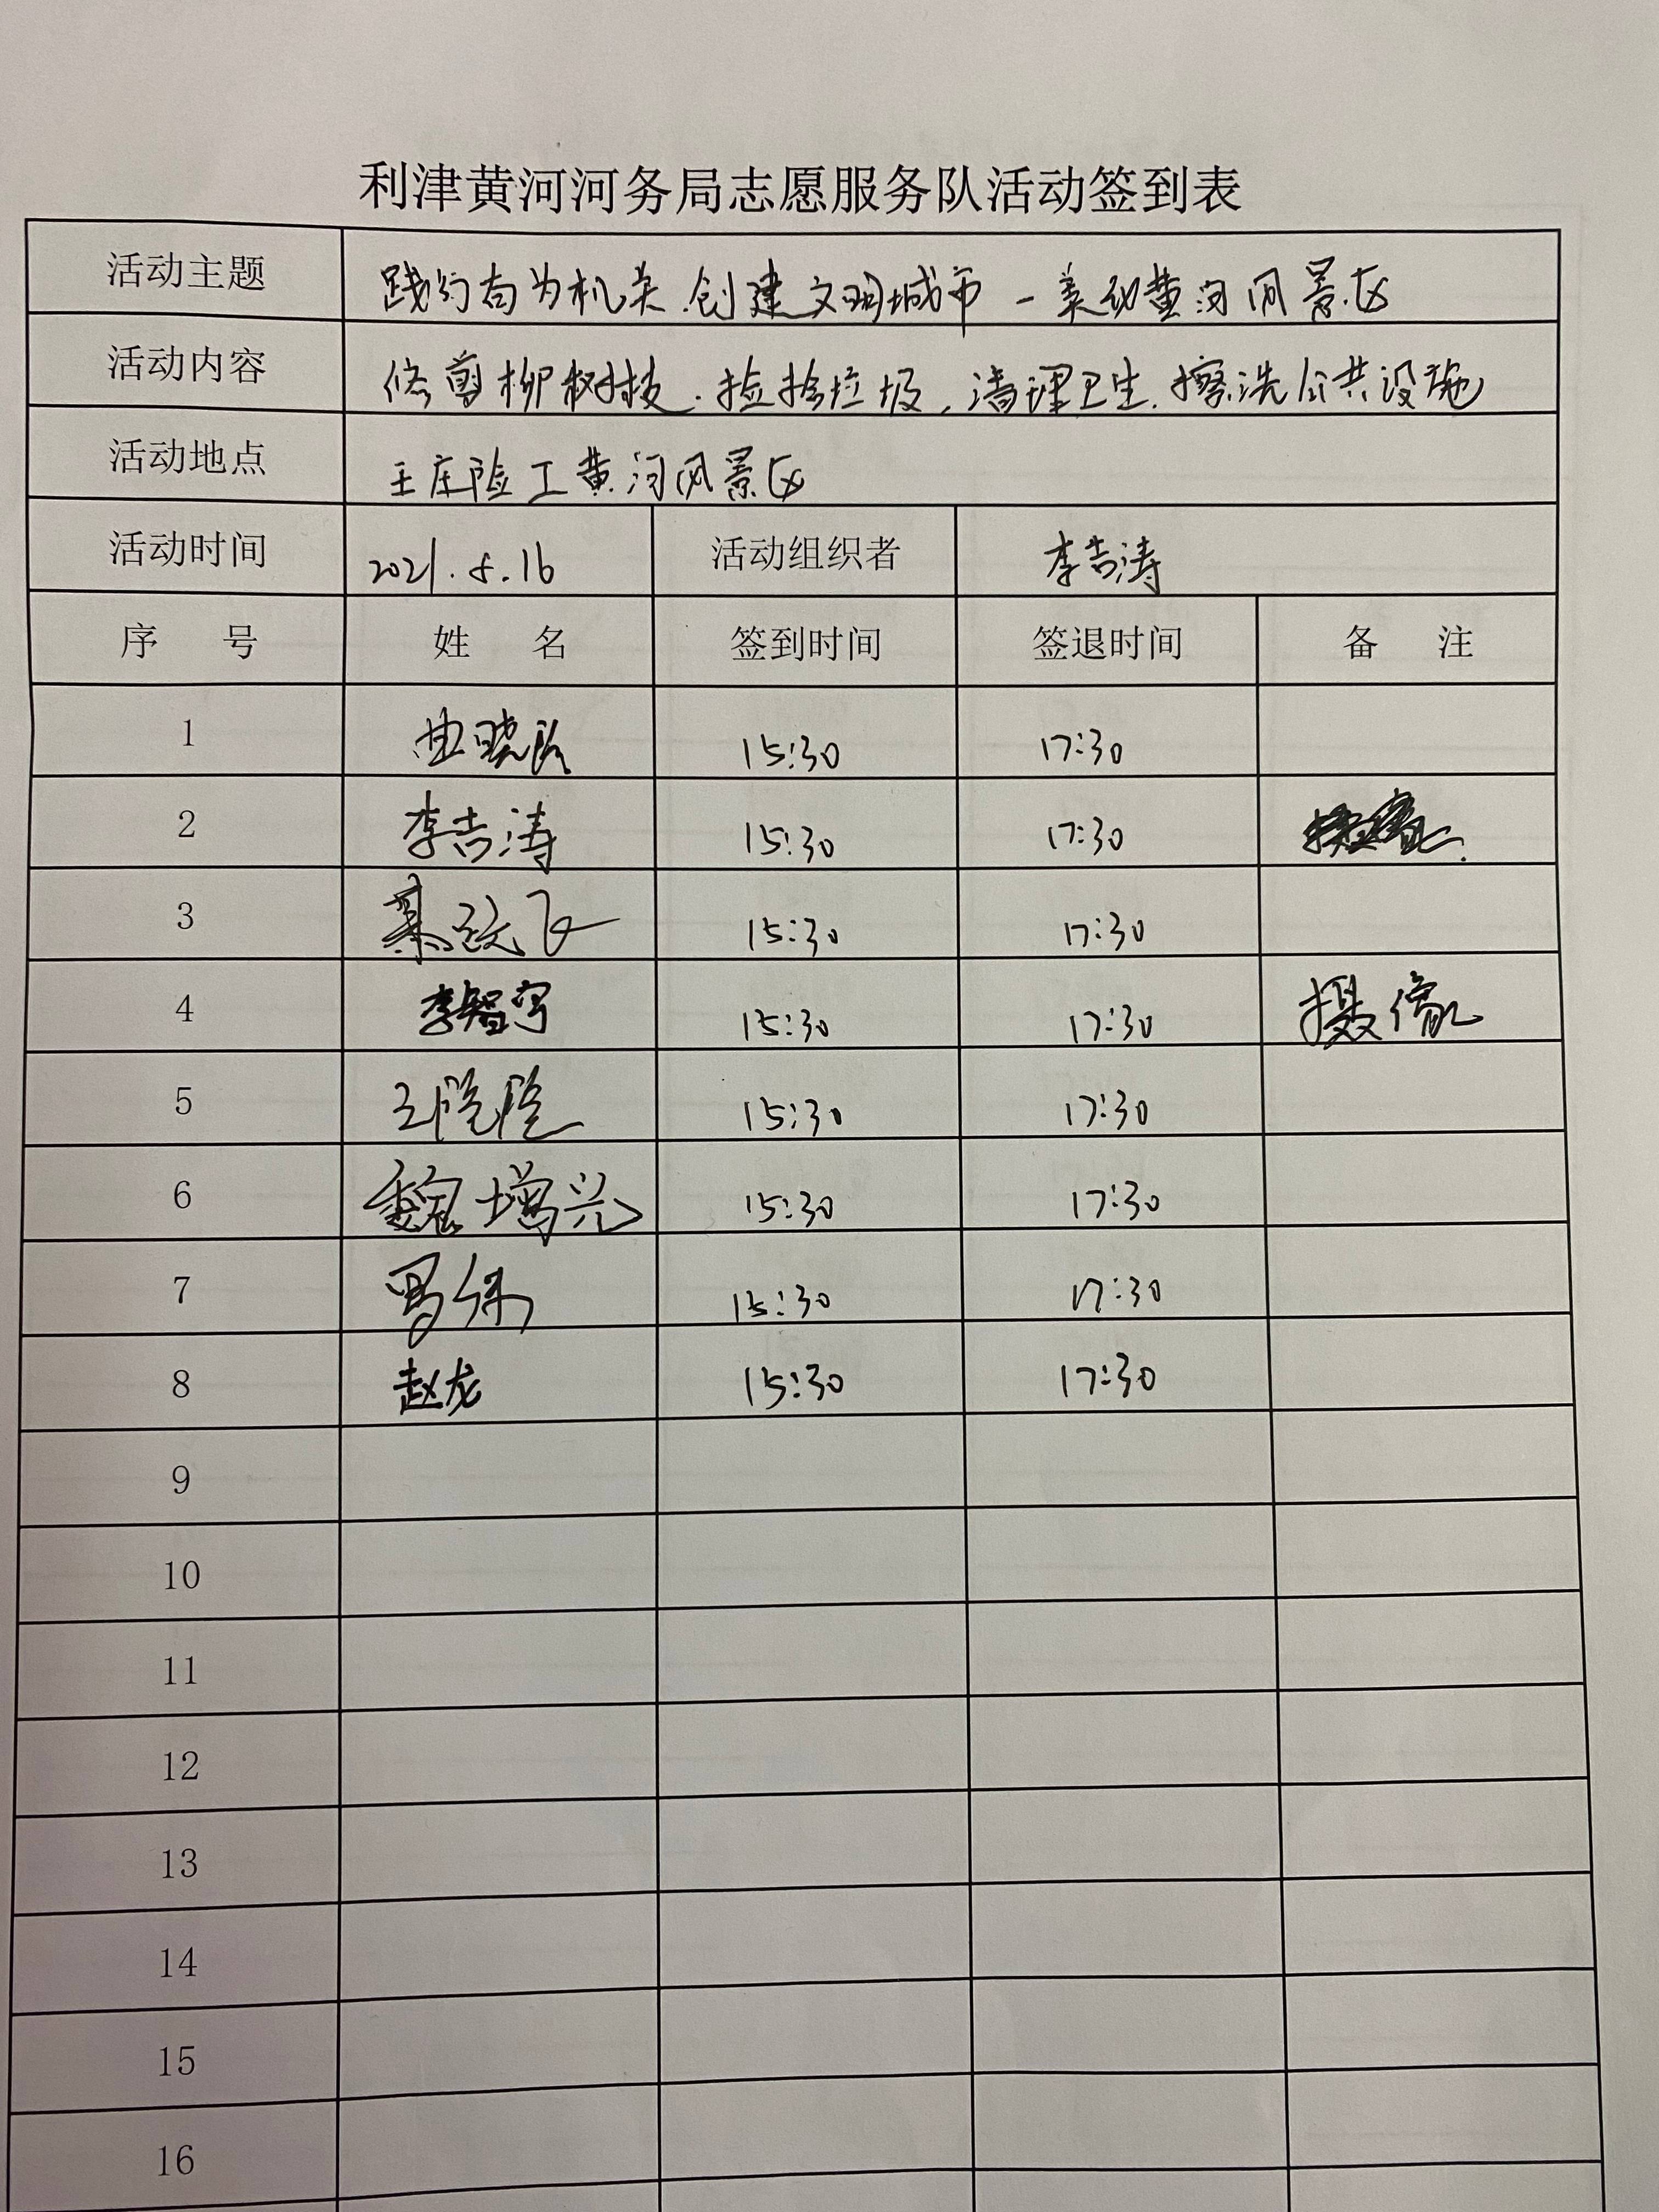 利津黄河河务局志愿服务队活动签到表
活动主题 践行有为机关.创建文明城市-美动黄河风景区
活动内容 修剪柳树枝.捡拾垃圾,清理卫生.擦洗公共设施
活动地点 王庄险工黄河风景区
活动时间 2021.8.16 活动组织者 李吉涛
序 号 姓 名 签到时间 签退时间 备 注
1 15:30 17:30
2 李吉涛 15:30 17:30
3 15:30 17:30
4 李智宇 15:30 17:30 摄像
5 15:30 17:30
6 魏增兴 15:30 17:30
7 15:30 17:30
8 赵龙 15:30 17:30
9
10
11
12
13
14
15
16